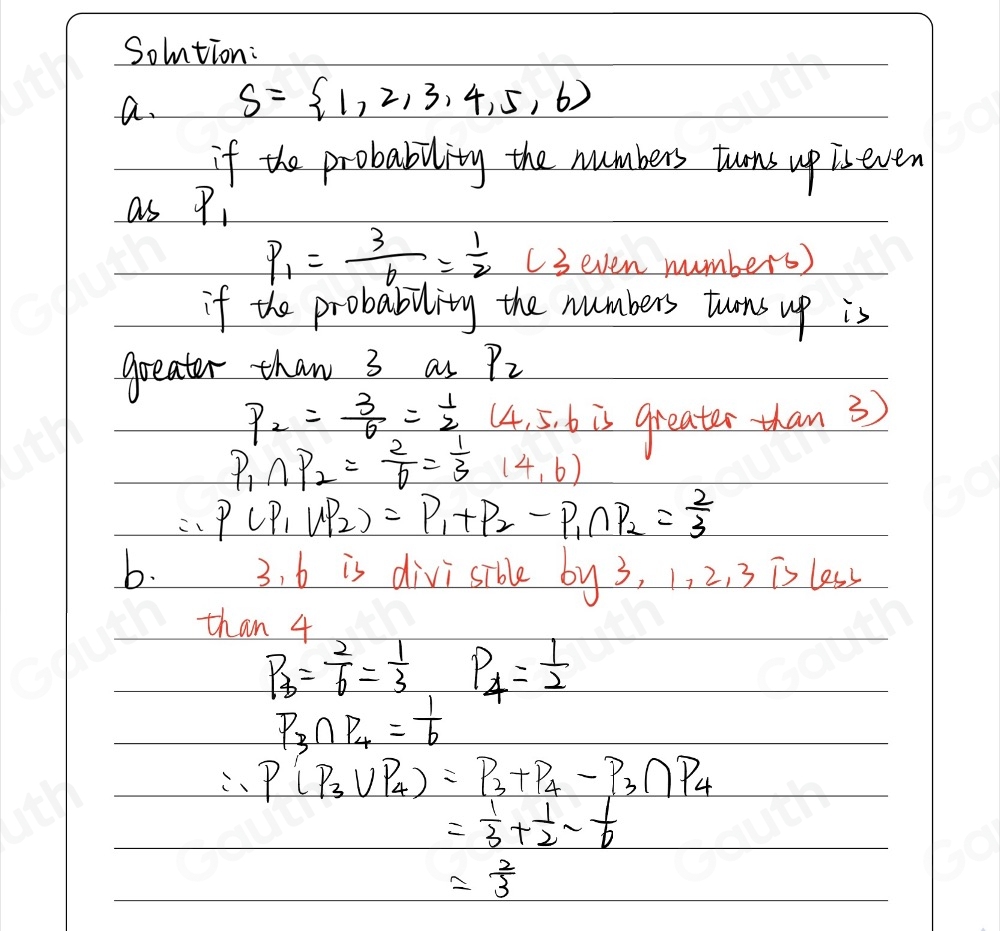 Solution:
a. S = {1, 2, 3, 4, 5, 6)
if the probability the numbers turns up is even
as P₁
P₁ = 3/6 = 1/2 (3 even numbers)
if the probability the numbers turns up is
greater than 3 as P₂
P₂ = 3/6 = 1/2 (4, 5, 6 is greater than 3)
P₁ ∩ P₂ = 2/6 = 1/3 (4, 6)
∴ P (P₁ ∪ P₂) = P₁ + P₂ - P₁ ∩ P₂ = 2/3
b. 3, 6 is divisible by 3, 1, 2, 3 is less
than 4
P₃ = 2/6 = 1/3 P₄ = 1/2
P₃ ∩ P₄ = 1/6
∴ P (P₃ ∪ P₄) = P₃ + P₄ - P₃ ∩ P₄
= 1/3 + 1/2 - 1/6
= 2/3